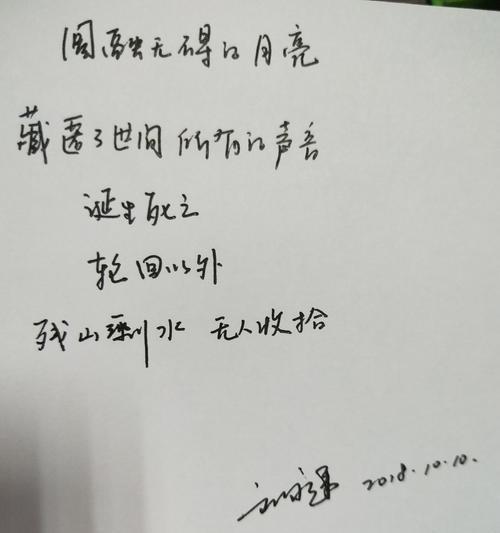 圆融无碍的月亮
藏匿了世间所有的声音
诞生死亡
轮回以外
残山剩水 无人收拾
2018.10.10.